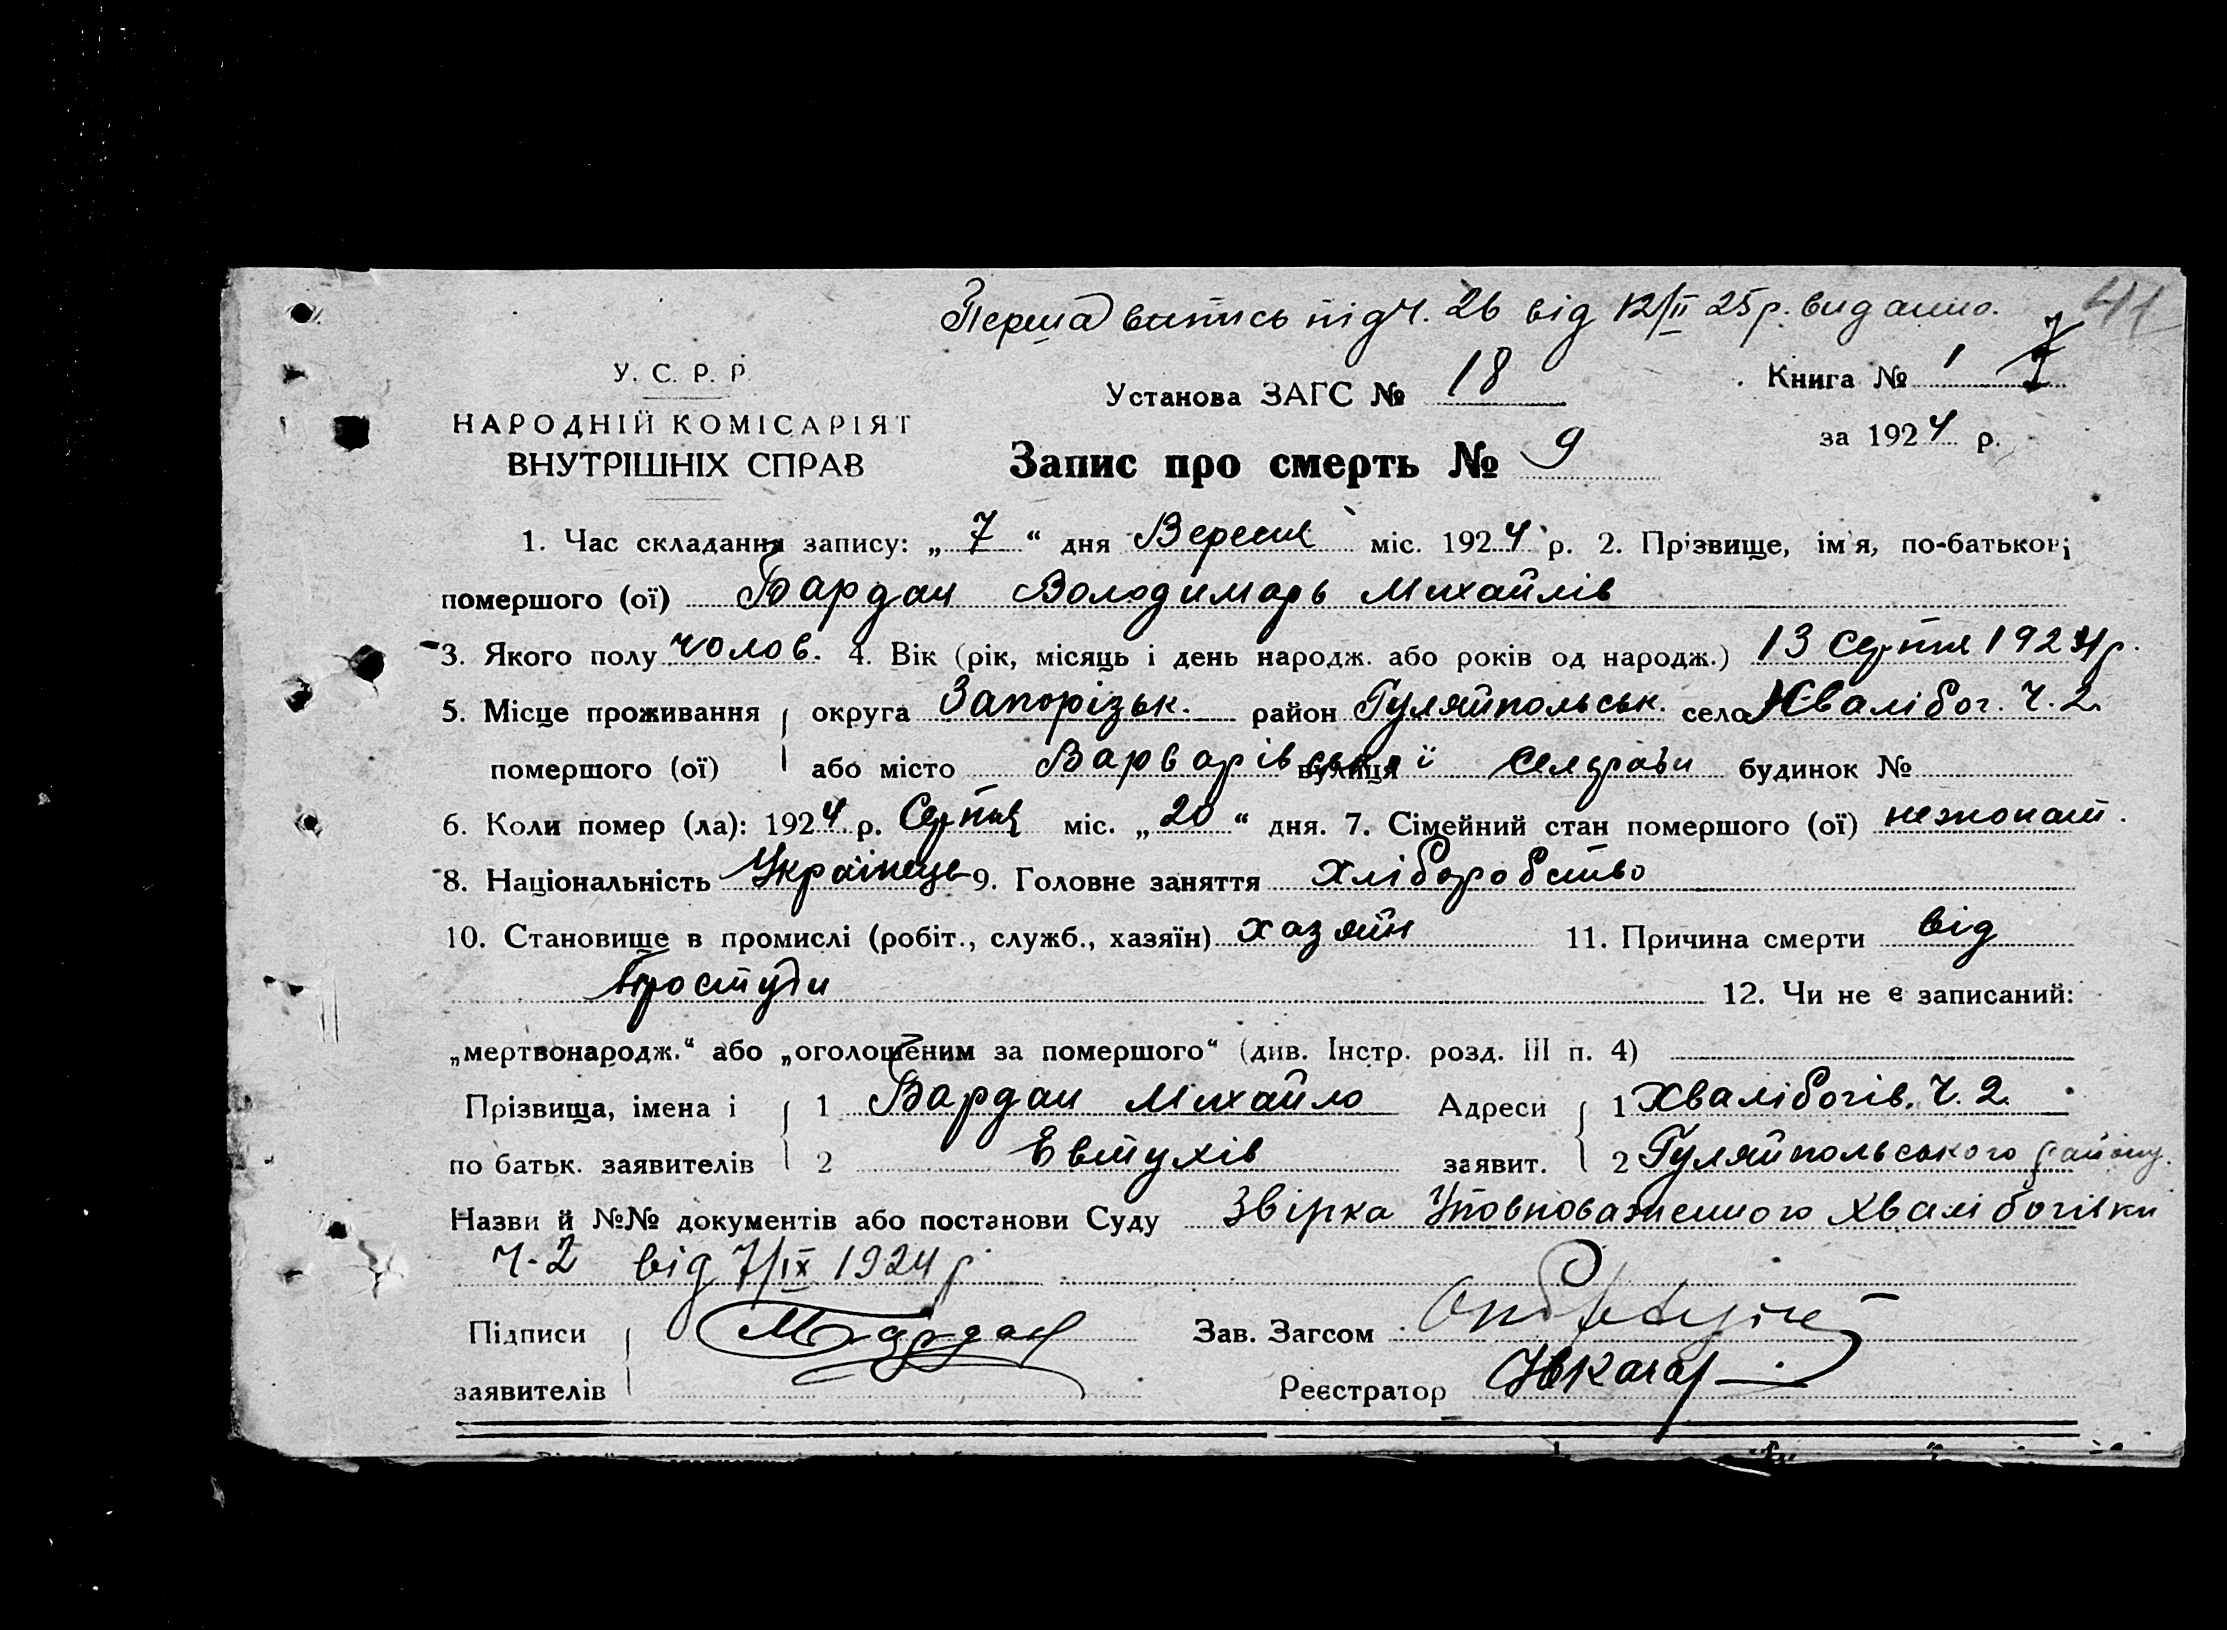 Перша витись під Ч. 26 від 12/II 25 р. видано. 41
У. С. Р. Р.
Установа ЗАГС № 18
Книга № 1
НАРОДНІЙ КОМІСАРІЯТ
за 1924 р.
ВНУТРІШНІХ СПРАВ
Запис про смерть № 9
1. Час складання запису: „7“ дня Вересня міс. 1924 р. 2. Прізвище, ім'я, по-батькові
помершого (ої) Бардан Володимарь Михайлів
3. Якого полу чолов. 4. Вік (рік, місяць і день народж. або років од народж.) 13 Серпня 1924 р.
5. Місце проживання округа Запорізьк. район Гуляйпольськ. село Хвалібог. Ч. 2.
помершого (ої) або місто Варварівської вулиця Сельради будинок №
6. Коли помер (ла): 1924 р. Серпня міс. „20“ дня. 7. Сімейний стан помершого (ої) нежонат.
8. Національність Українець 9. Головне заняття Хліборобство
10. Становище в промислі (робіт., служб., хазяїн) хазяйн 11. Причина смерти від
Простуди 12. Чи не є записаний:
„мертвонародж.“ або „оголошеним за помершого“ (див. Інстр. розд. III п. 4)
Прізвища, імена і 1 Бардан Михайло Адреси 1 Хвалібогів. Ч. 2.
по батьк. заявителів 2 Евтухів заявит. 2 Гуляйпольського району.
Назви й №№ документів або постанови Суду Звірка Уповноваженного Хвалібогівки
Ч. 2 від 7/IX 1924 р.
Підписи М Бардан Зав. Загсом
заявителів Реєстратор